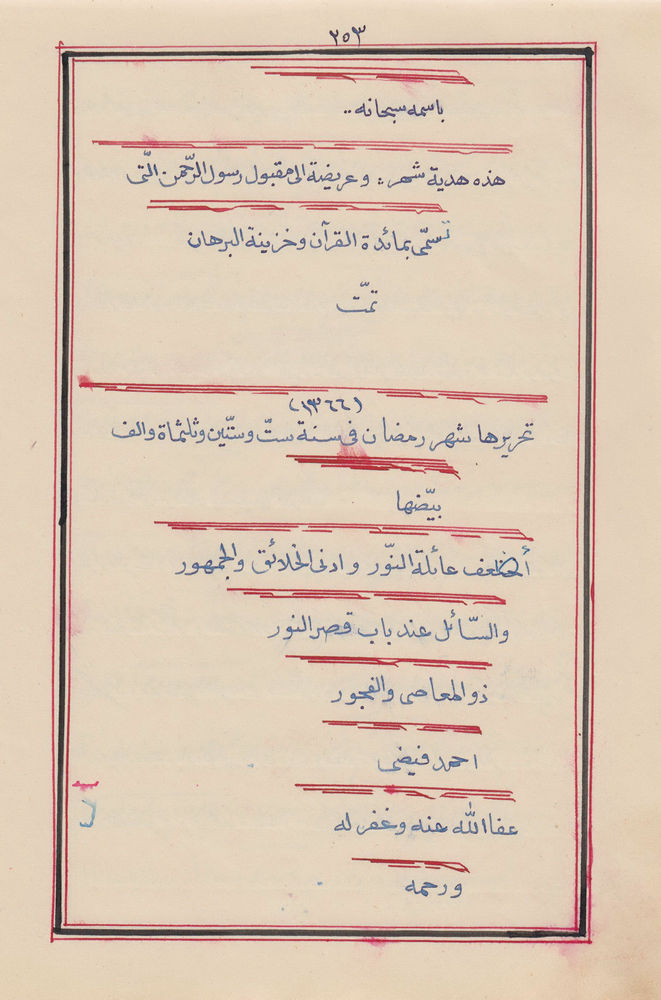 ٢٥٣
باسمه سبحانه ..
هذه هدية شهر : وعريضة الى مقبول رسول الرّحمن الّتى
تسمّى بمائدة القرآن وخزينة البرهان
تمّت
(١٣٦٦)
تحريرها شهر رمضان فى سنة ستّ وستّين وثلثماة والف
بيّضها
أضعف عائلة النّور وادنى الخلائق والجمهور
والسّائل عند باب قصر النور
ذو المعاصى والفجور
احمد فيضى
عفا الله عنه وغفر له
ورحمه